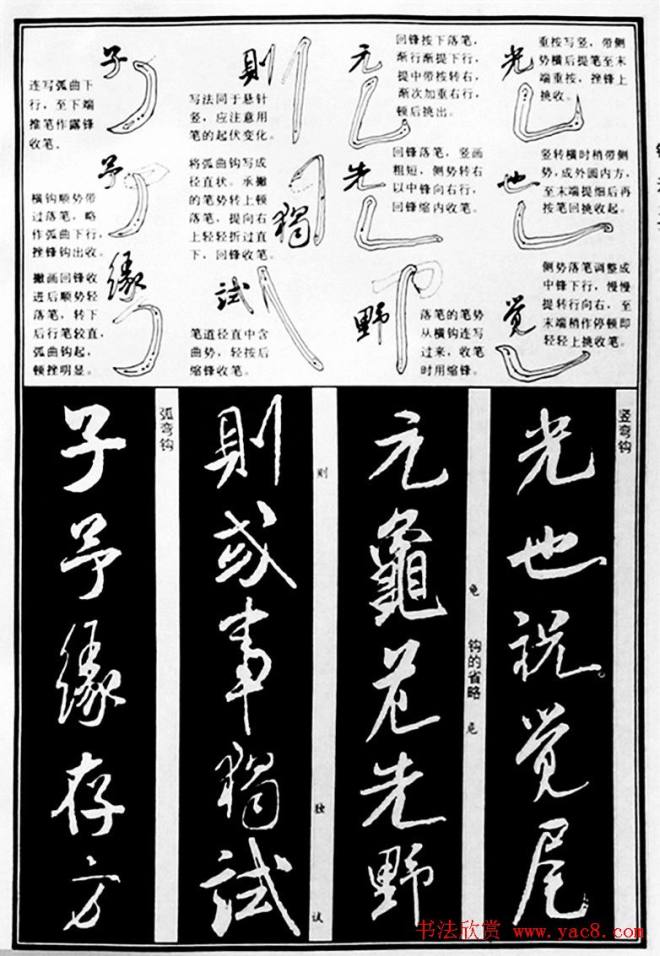 光
重按写竖，带侧
势横后提笔至末
端重按，挫锋上
挑收。
也
竖转横时稍带侧
势，成外圆内方，
至末端提细后再
按笔回挑收起。
觉
侧势落笔调整成
中锋下行，慢慢
提转行向右，至
末端稍作停顿即
轻轻上挑收笔。
元
回锋按下落笔，
渐行渐提下行，
提中带按转右，
渐次加重右行，
顿后挑出。
先
回锋落笔，竖画
粗短，侧势转右
以中锋向右行，
回锋缩内收笔。
野
落笔的笔势
从横钩连写
过来，收笔
时用缩锋。
则
写法同于悬针
竖，应注意用
笔的起伏变化。
独
将弧曲钩写成
径直状。承撇
的笔势转上顿
落笔，提向右
上轻轻折过直
下，回锋收笔。
試
笔道径直中含
曲势，轻按后
缩锋收笔。
子
连写弧曲下
行，至下端
推笔作露锋
收笔。
予
横钩顺势带
过落笔，略
作弧曲下行，
挫锋钩出收。
缘
撇画回锋收
进后顺势轻
落笔，转下
后行笔较直，
弧曲钩起，
顿挫明显。
竖弯钩
光也祝觉尾
钩的省略
元龜危先野
龟
危
則或事獨試
则
独
试
弧弯钩
子予缘存方
书法欣赏 www.yac8.com